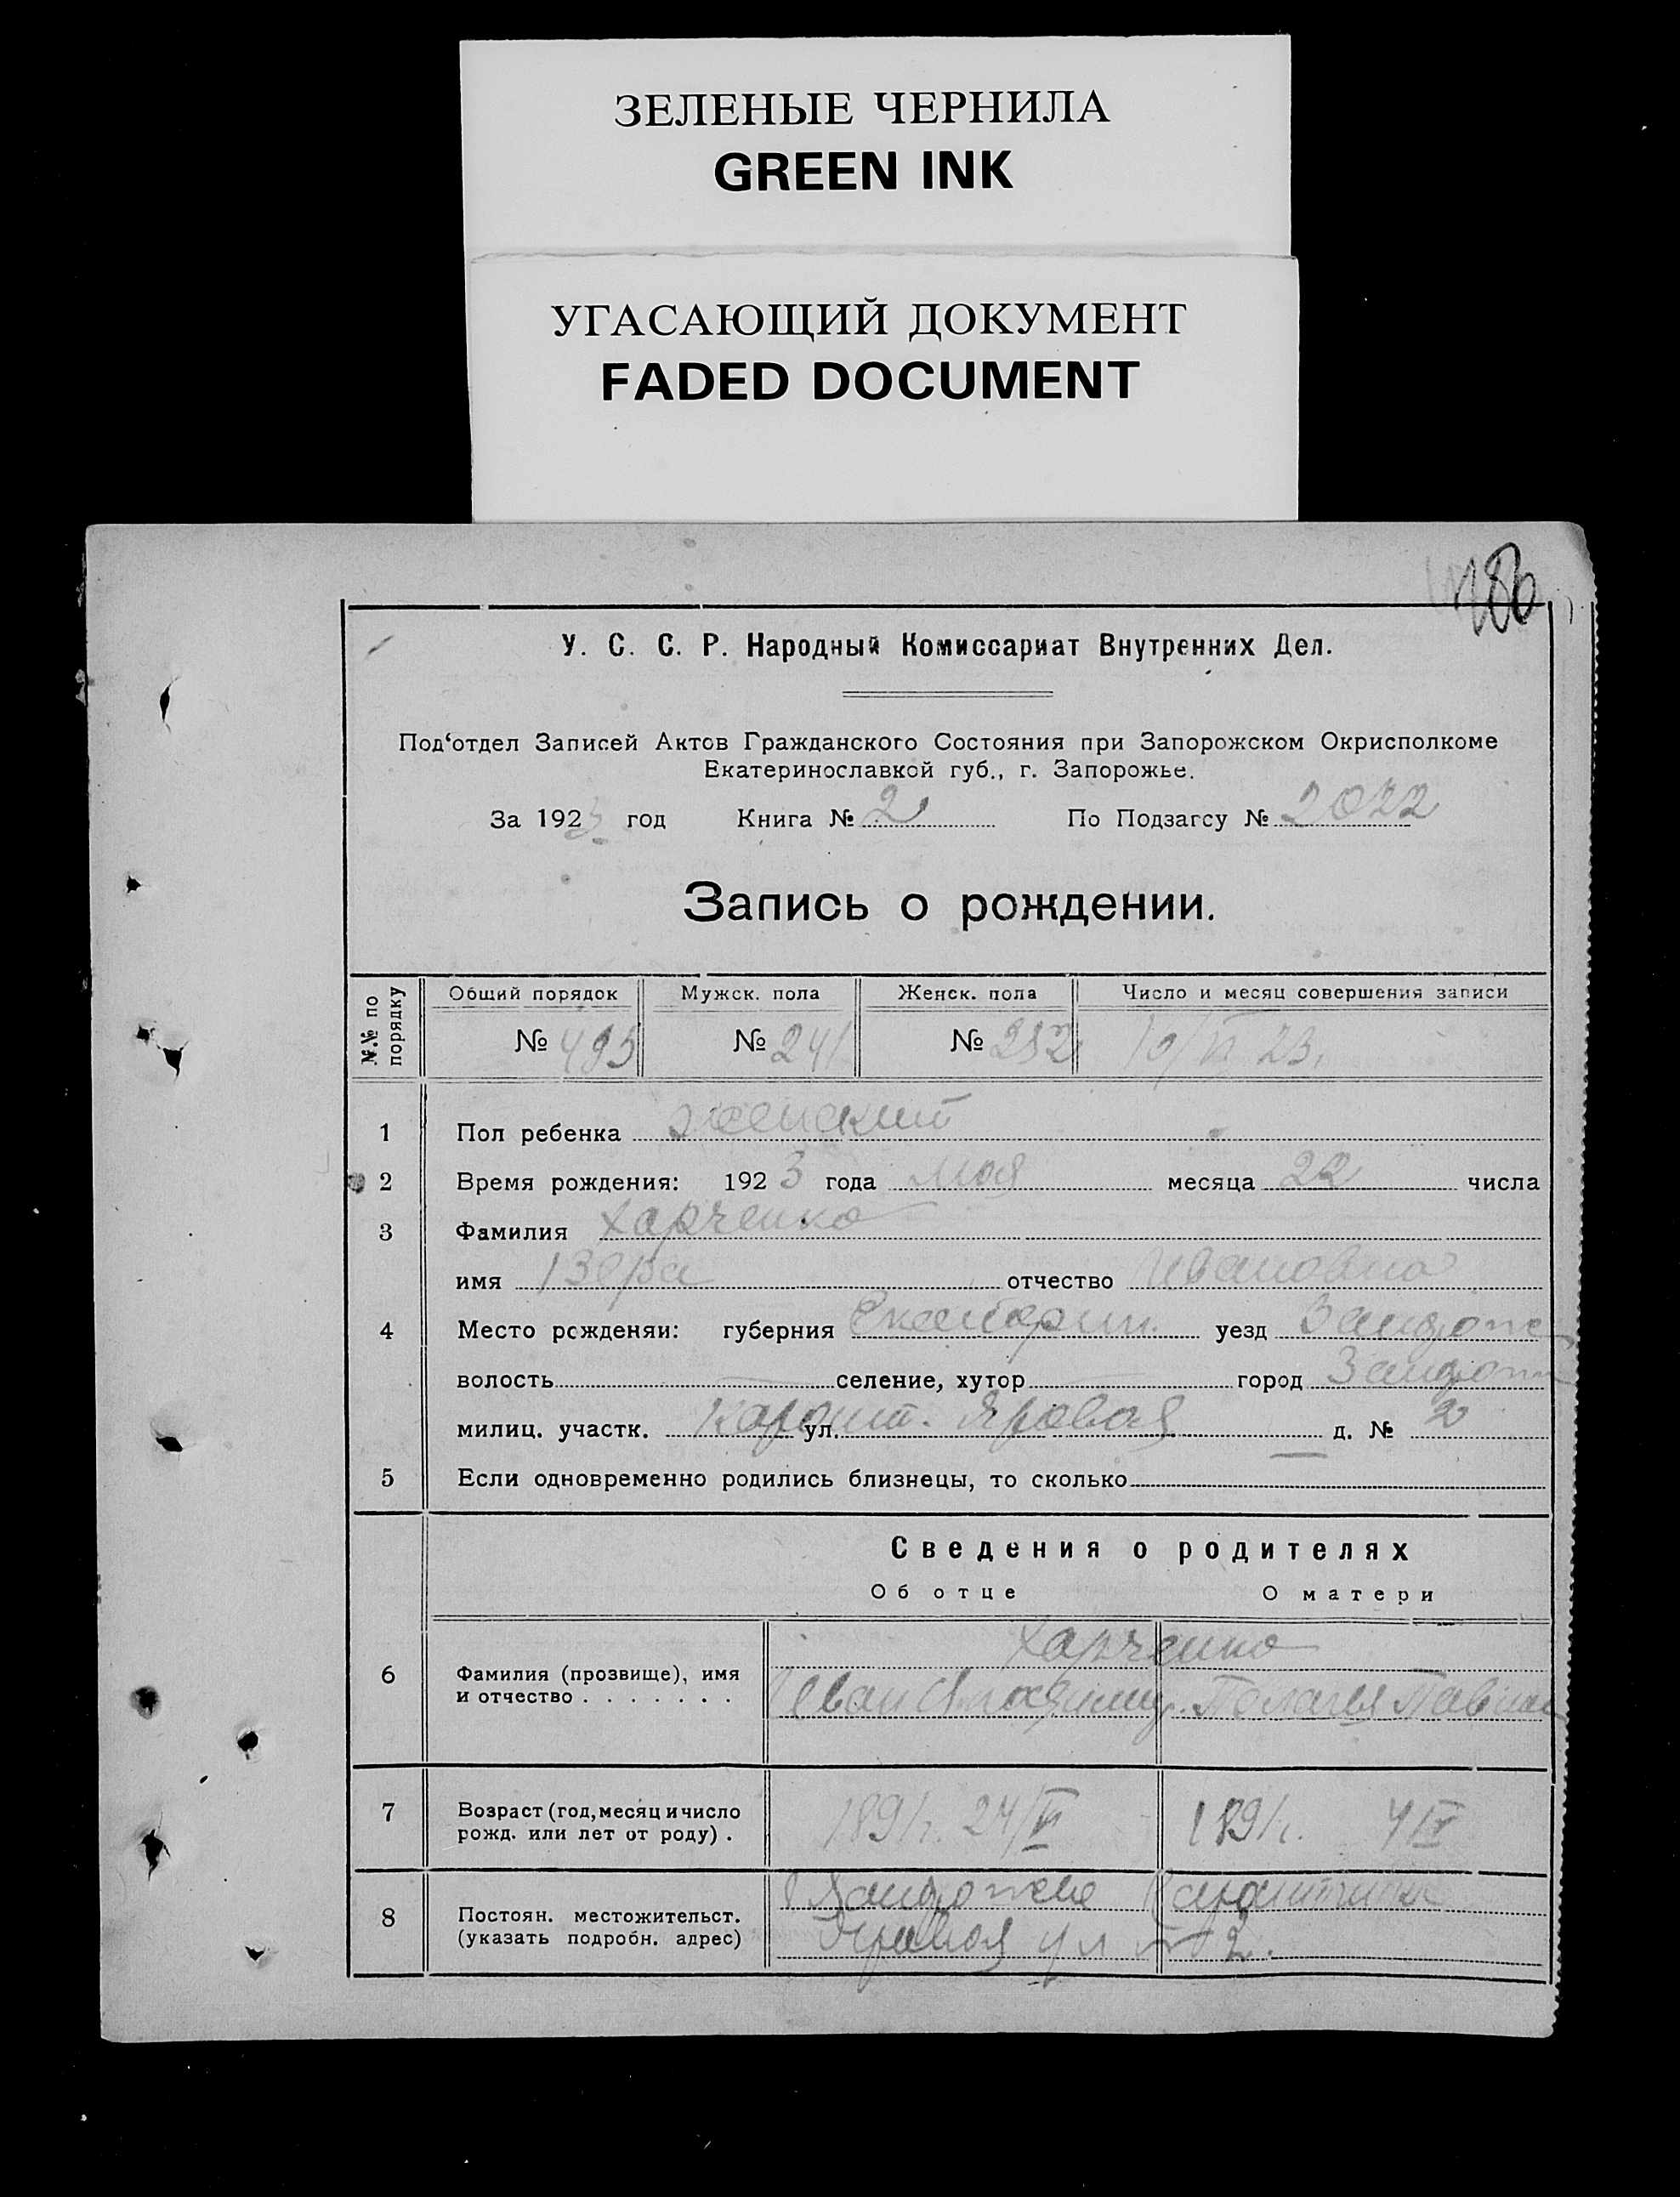 ЗЕЛЕНЫЕ ЧЕРНИЛА
GREEN INK
УГАСАЮЩИЙ ДОКУМЕНТ
FADED DOCUMENT
У. С. С. Р. Народный Комиссариат Внутренних Дел.
Под‘отдел Записей Актов Гражданского Состояния при Запорожском Окрисполкоме
Екатеринославкой губ., г. Запорожье.
За 1923 год Книга № 2 По Подзагсу № 2022
Запись о рождении.
№.№ по порядку Общий порядок Мужск. пола Женск. пола Число и месяц совершения записи
№ 493 № 241 № 252 10/VI 23.
1 Пол ребенка женский
2 Время рождения: 1923 года мая месяца 22 числа
3 Фамилия Харченко
имя Вера отчество Ивановна
4 Место рожденяи: губерния Екатерин. уезд Запорож
волость селение, хутор город Запорож
милиц. участк. Карант. ул. Яровая д. № 2
5 Если одновременно родились близнецы, то сколько
Сведения о родителях
Об отце О матери
Харченко
6 Фамилия (прозвище), имя
и отчество . . . . . . . Иван Пелагея Павлов
7 Возраст (год, месяц и число
рожд. или лет от роду) . 1891г. 24/VI 1891г. 4/IV
8 Постоян. местожительст.
(указать подробн. адрес) Запорожье
Яровая ул № 2.